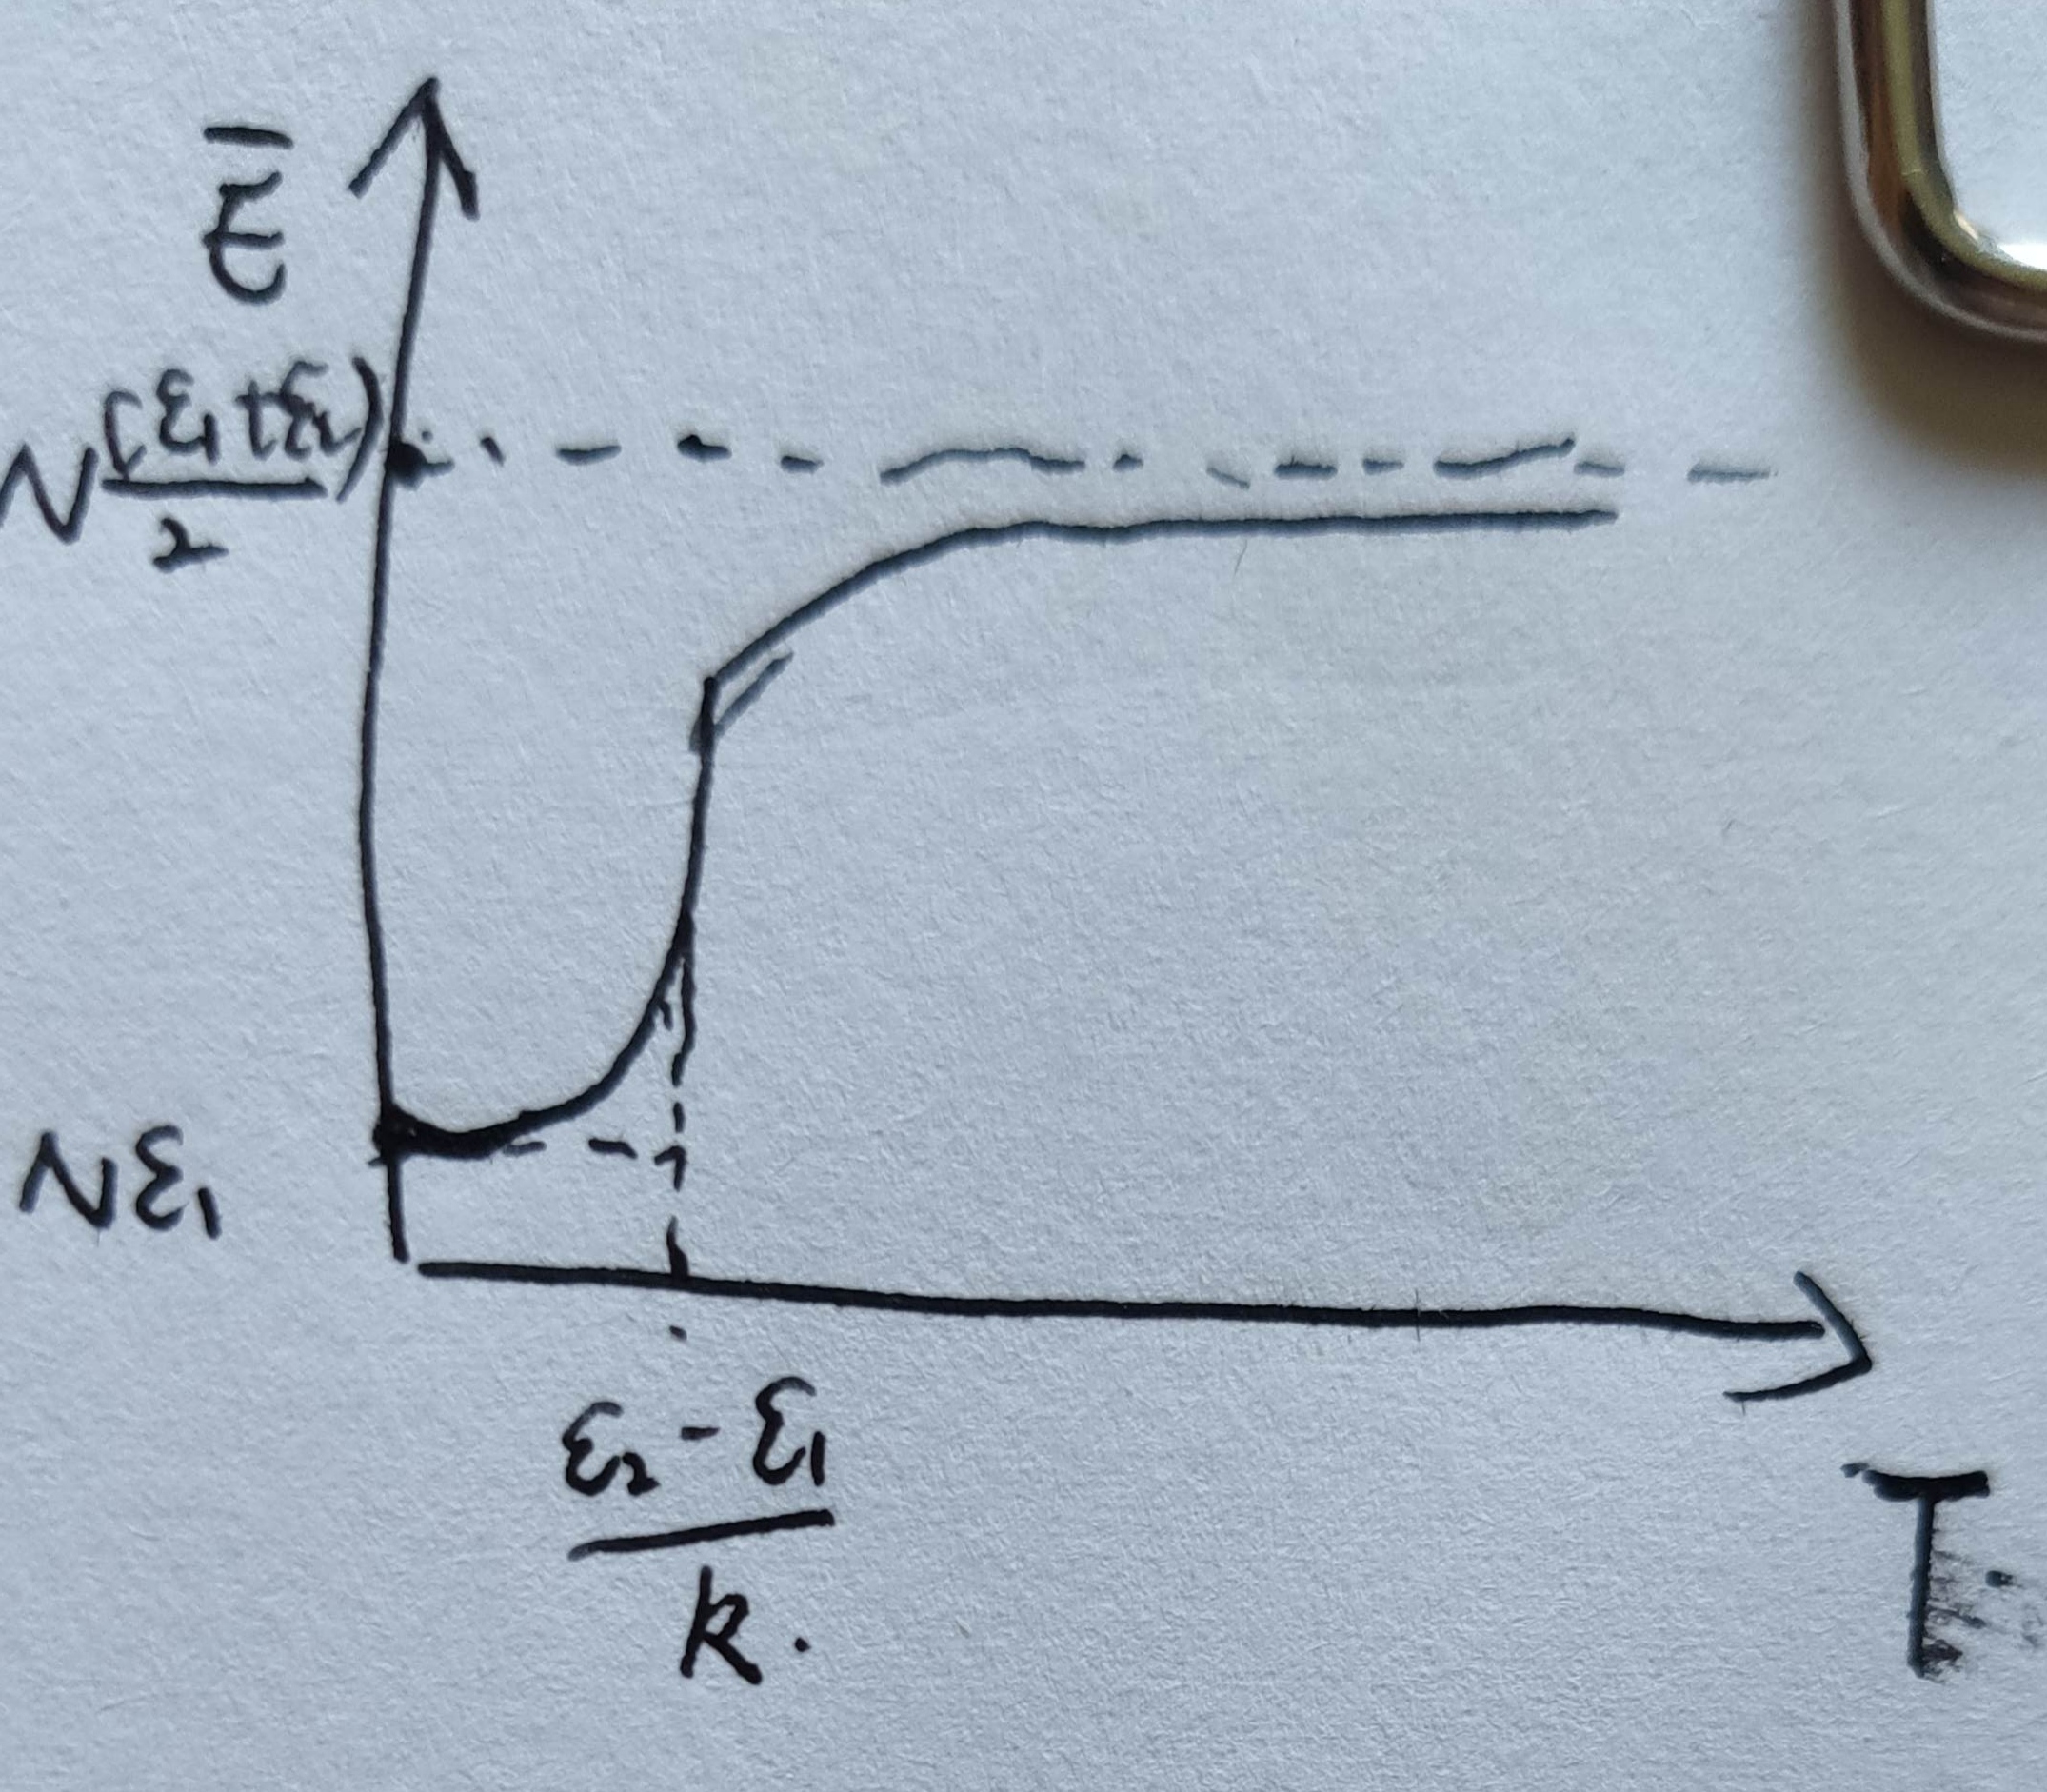 Ē
N(ε₁+ε₂)/2
Nε₁
ε₂-ε₁
k.
T